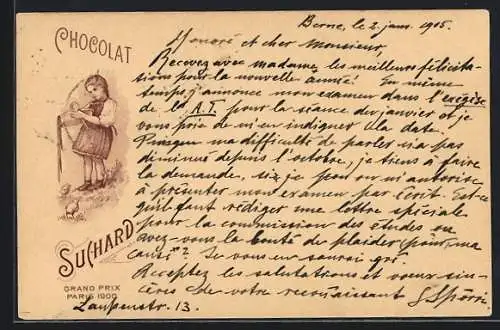 CHOCOLAT
SUCHARD
GRAND PRIX
PARIS 1900
Berne, le 2 janv. 1905.
Honoré et cher Monsieur,
Recevez avec madame les meilleurs félicita-
tions pour la nouvelle année! En même
temps, j'annonce mon examen dans l'exégèse
de l'A.T. pour la séance de janvier et je
vous prie de m'en indiquer la date.
Puisque ma difficulté de parler n'a pas
diminué depuis l'octobre, je tiens à faire
la demande, si je peut on m'autorise
à présenter mon examen par écrit. Est-ce
qu'il faut rédiger une lettre spéciale
pour la commission des études ou
avez-vous la bonté de plaider pour ma
cause? Je vous en saurai gré.
Receptez les salutations et voeux sin-
cères de votre reconnaissant
Laupenstr. 13.